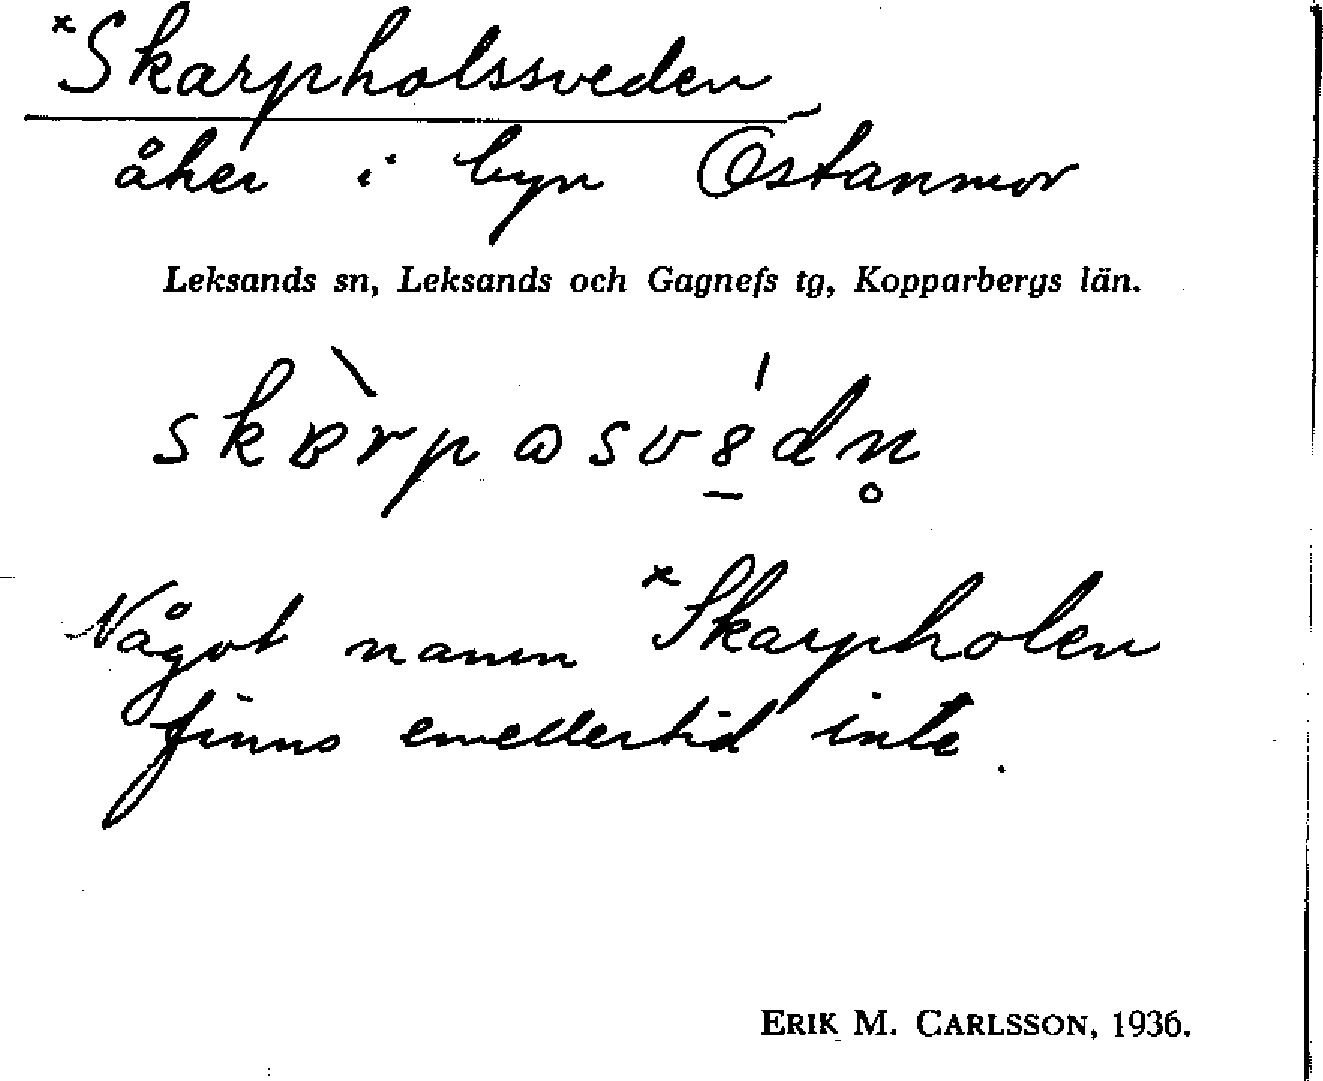 *Skarpholssveden
åker i byn Östanmor
Leksands sn, Leksands och Gagnefs tg, Kopparbergs län.
Något namn *Skarpholen
finns emellertid inte.
ERIK M. CARLSSON, 1936.